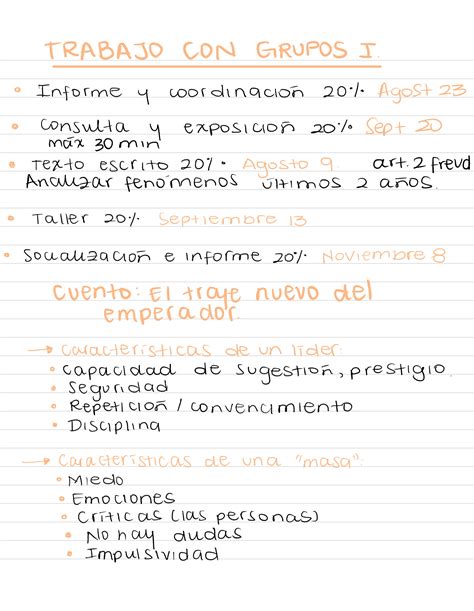 TRABAJO CON GRUPOS I.
• Informe y coordinación 20%. Agost 23
• Consulta y exposición 20% Sept 20
máx 30 min
• Texto escrito 20%. Agosto 9. art. 2 freud
Analizar fenómenos últimos 2 años.
• Taller 20%. Septiembre 13
• Socialización e informe 20%. Noviembre 8
Cuento: El traje nuevo del
emperador.
→ Características de un líder:
• Capacidad de sugestión, prestigio.
• Seguridad
• Repetición / convencimiento
• Disciplina
→ Características de una "masa":
• Miedo
• Emociones
• Críticas (las personas)
• No hay dudas
• Impulsividad